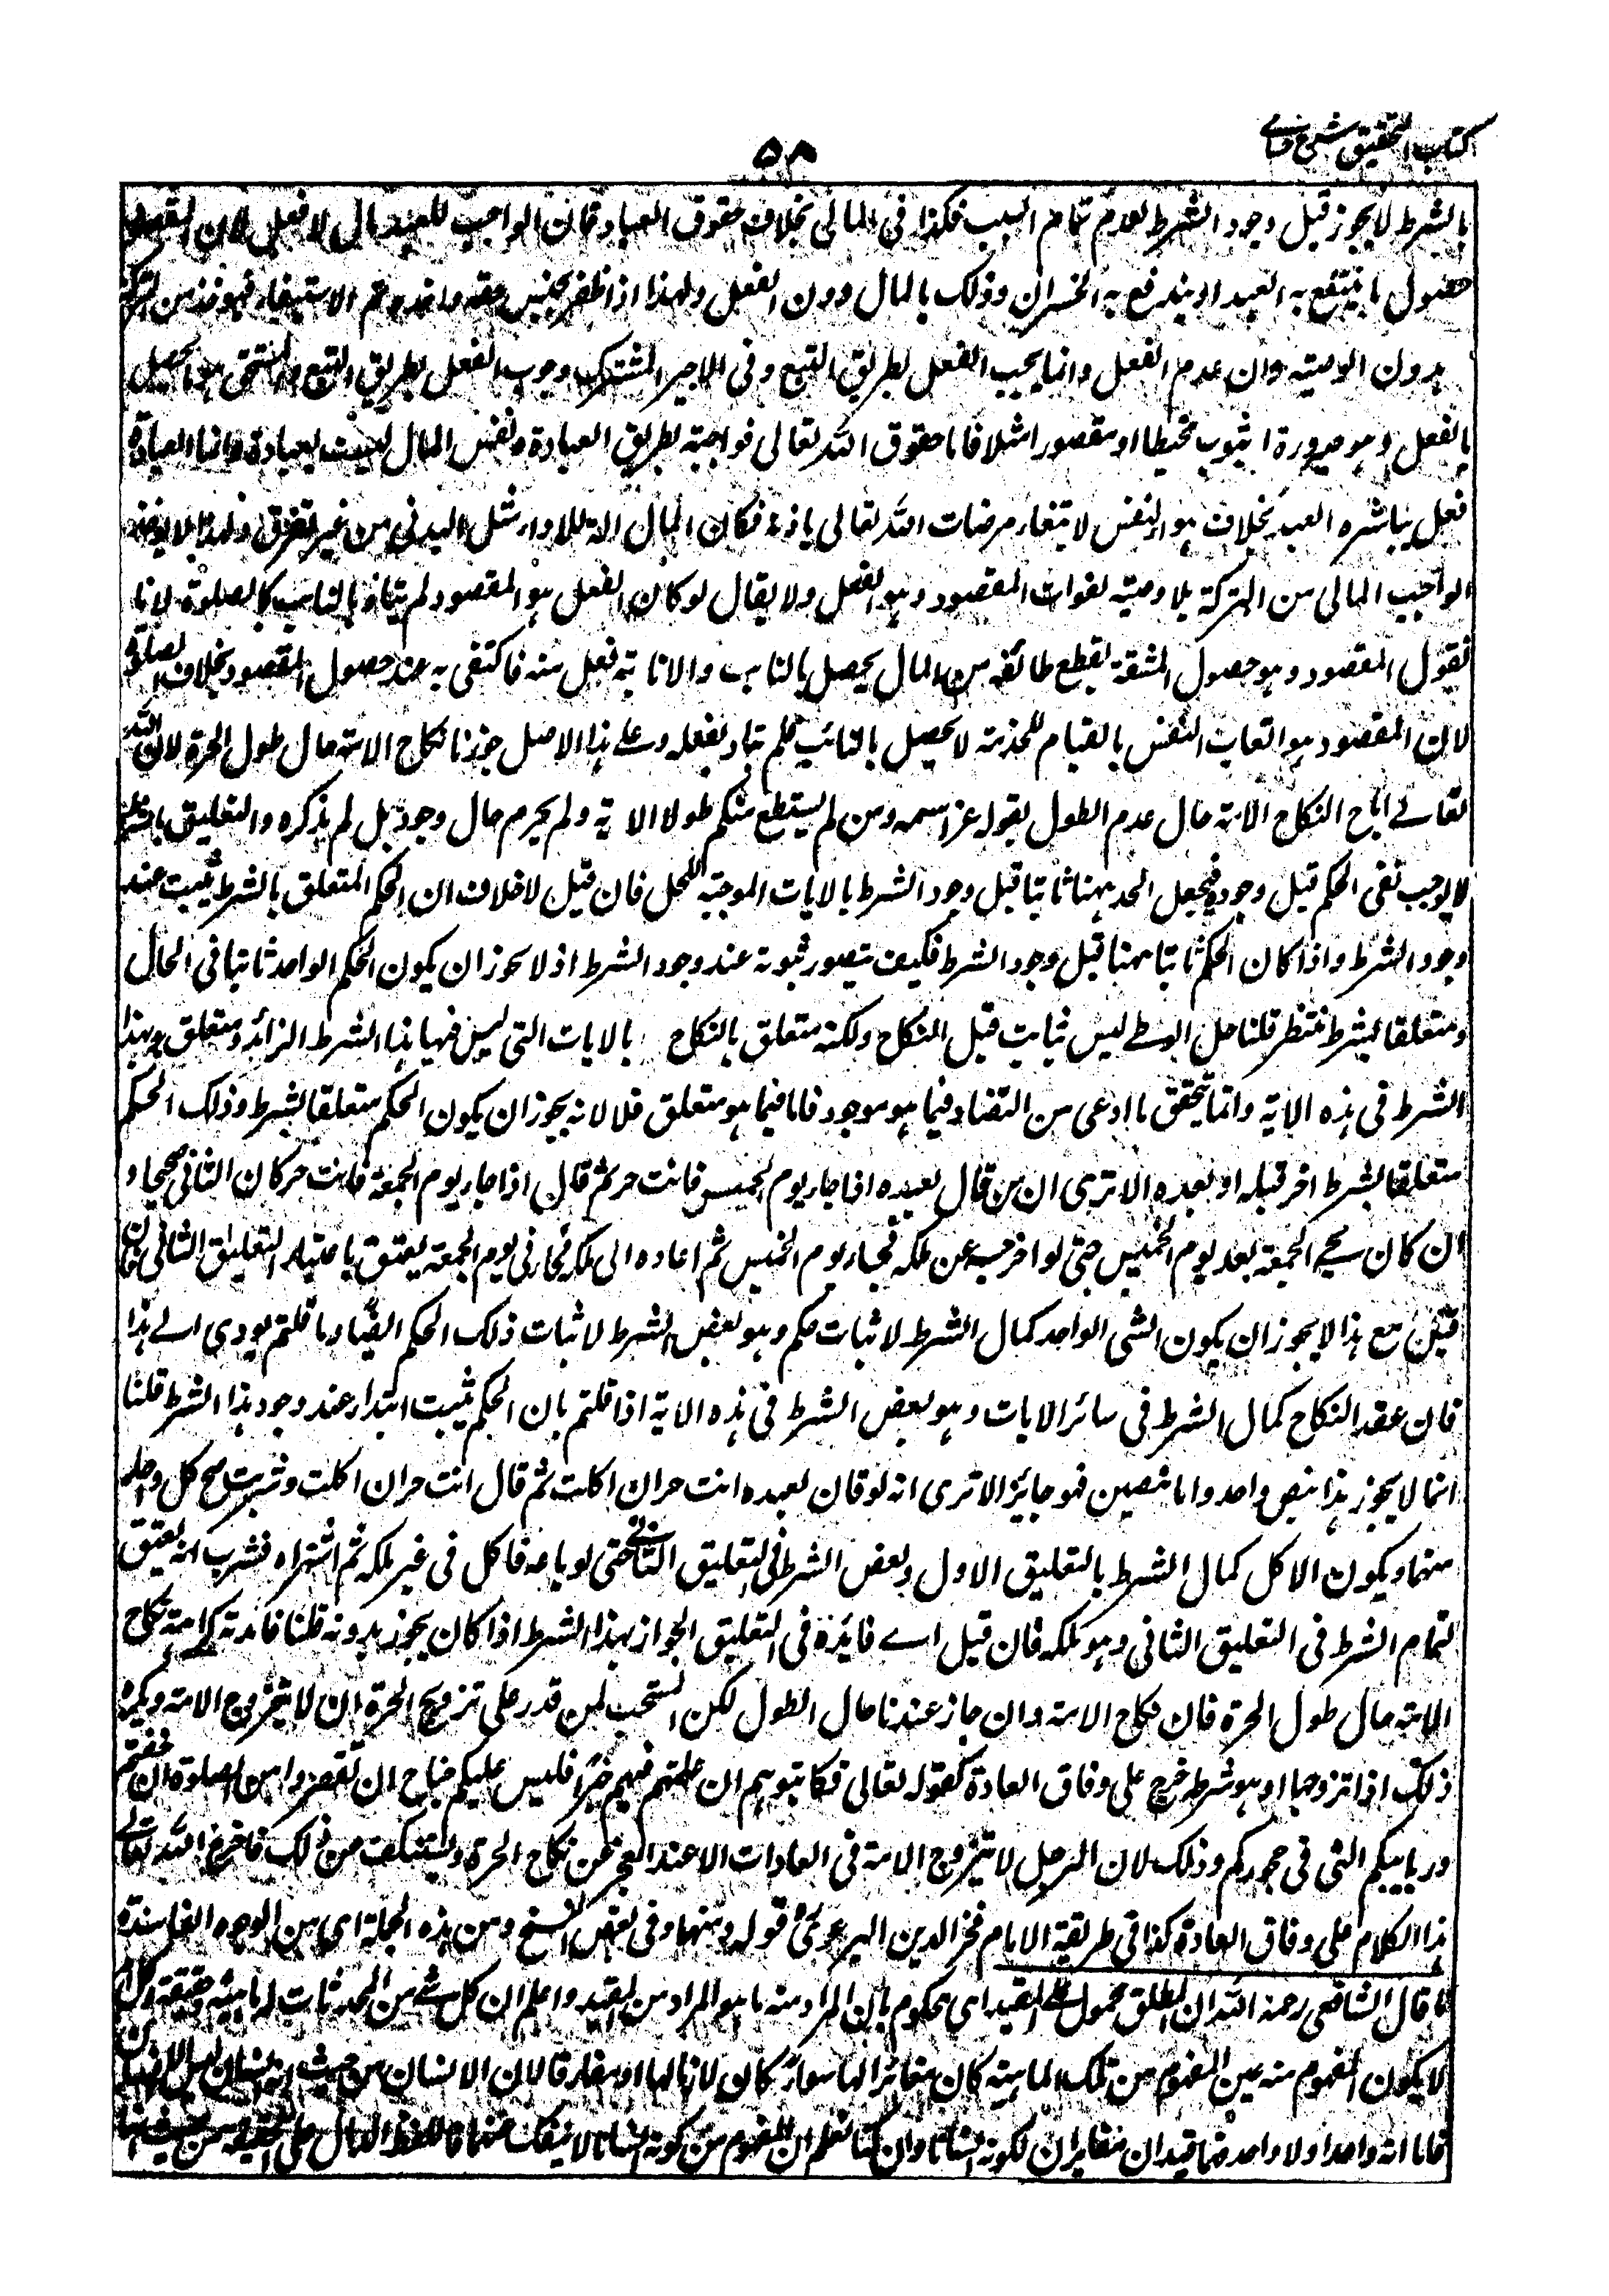 كتاب التحقيق شرح حسامے
٥٨
بالشرط لايجوز قبل وجود الشرط لعدم تمام السبب فكذا فى المالى بخلاف حقوق العباد فان الواجب للعبد مال لا فعل لان المقصود
حصول ما ينتفع به العبد او يندفع به الخسران وذلك بالمال دون الفعل ولهذا اذا ظفر بجنس حقه واخذه تم الاستيفاء فهو خذ من التركة
بدون الوصية وان عدم الفعل وانما يجب الفعل بطريق التبع وفى الاجير المشترك وجوب الفعل بطريق التبع والمستحق ما يحصل
بالفعل وهو صيرورة الثوب مخيطا او مقصورا مثلا فاما حقوق الله تعالى فواجبة بطريق العبادة ونفس المال ليست بعبادة وانما العبادة
فعل يباشره العبد بخلاف هوا النفس لابتغاء مرضات الله تعالى باذنه فكان المال الة للاداء مثل البدنى من غير تفرق ولهذا لا يوخذ
الواجب المالى من التركة بلا وصية لفوات المقصود وهو الفعل ولا يقال لو كان الفعل هو المقصود لم يتاد بالنائب كالصلوة لانا
نقول المقصود وهو حصول المشقة بقطع طائفة من المال يحصل بالنائب والانابة فعل منه فاكتفى به عند حصول المقصود بخلاف الصلوة
لان المقصود هو اتعاب النفس بالقيام للخدمة لا يحصل بالنائب فلم يتاد بفعله وعلے هذا الاصل جوزنا نكاح الامة حال طول الحرة لان الله
تعالے اباح النكاح الامة حال عدم الطول بقوله عز اسمه ومن لم يستطع منكم طولا الاية ولم يحرم حال وجوده بل لم يذكره والتعليق بالشرط
لا يوجب نفى الحكم قبل وجوده فيجعل الحد ههنا ثابتا قبل وجود الشرط بالايات الموجبة للحل فان قيل لا خلاف ان الحكم المتعلق بالشرط يثبت عند
وجود الشرط واذا كان الحكم ثابتا ههنا قبل وجود الشرط فكيف يتصور ثبوته عند وجود الشرط اذ لا يجوز ان يكون الحكم الواحد ثابتا فى الحال
ومتعلقا بشرط منتظر قلنا حل الوطے ليس بثابت قبل النكاح ولكنه متعلق بالنكاح بالايات التى ليس فيها هذا الشرط الزائد ومتعلق بهذا
الشرط فى هذه الاية وانما يتحقق ما ادعى من التضاد فيما هو موجود فاما فيما هو متعلق فلا لانه يجوز ان يكون الحكم متعلقا بشرط وذلك الحكم
متعلقا بشرط اخر قبله او بعده الا ترى ان من قال لعبده اذا جاء يوم الخميس فانت حر ثم قال اذا جاء يوم الجمعة فانت حر كان الثانى صحيحا و
ان كان مجے الجمعة بعد يوم الخميس حتى لو اخرجه عن ملكه فجاء يوم الخميس ثم اعاده الى ملكه فجاء يوم الجمعة يعتق باعتبار التعليق الثانى فان
قيل مع هذا لا يجوز ان يكون الشى الواحد كمال الشرط لاثبات حكم وهو بعض الشرط لاثبات ذلك الحكم ايضا وما قلتم يودى الے هذا
فان عقد النكاح كمال الشرط فى سائر الايات وهو بعض الشرط فى هذه الاية اذا قلتم بان الحكم يثبت ابتداء عند وجود هذا الشرط قلنا
انما لا يجوز هذا بنص واحد واما بنصين فهو جايز الا ترى انه لو قال لعبده انت حر ان اكلت ثم قال انت حر ان اكلت وشربت صح كل واحد
منهما ويكون الاكل كمال الشرط بالتعليق الاول وبعض الشرط فى التعليق الثانى حتى لو باعه فاكل فى غير ملكه ثم اشتراه فشرب انه يعتق
لتمام الشرط فى التعليق الثانى وهو ملكه فان قيل اے فائدة فى التعليق الجواز بهذا الشرط اذا كان يجوز بدونه قلنا فائدته كراهة نكاح
الامة حال طول الحرة فان نكاح الامة وان جاز عندنا حال الطول لكن المستحب لمن قدر على تزويج الحرة ان لا يتزوج الامة ويكره
ذلك اذا تزوجها او هو شرط خرج على وفاق العادة كقوله تعالى فكاتبوهم ان علمتم فيهم خيرا فليس عليكم جناح ان تقصروا من الصلوة ان خفتم
وربايبكم التى فى حجوركم وذلك لان الرجل لا يتزوج الامة فى العادات الا عند العجز عن نكاح الحرة ويستنكف من ذلك فاخرج الله تعالے
هذا الكلام على وفاق العادة كذا فى طريقة الامام فخر الدين البرعونى قوله ومنها وفى بعض النسخ ومن هذه الجملة اى من الوجوه الفاسدة
ما قال الشافعى رحمه الله ان المطلق محمول على المقيد اى محكوم بان المراد منه ما هو المراد من المقيد واعلم ان كل شے من المحدثات له ماهية وحقيقة وكل
لا يكون المفهوم منه عين المفهوم من تلك الماهية كان مغائرا لها سواء كان لازما لها او مفارقا لان الانسان من حيث انه انسان ليس الا انسان
فاما انه واحد اولا واحد فهما قيدان مغايران لكونه انسانا وان كنا نعلم ان المفهوم من كونه انسانا لا ينفك عنهما فاللفظ الدال على الحقيقة من حيث انها